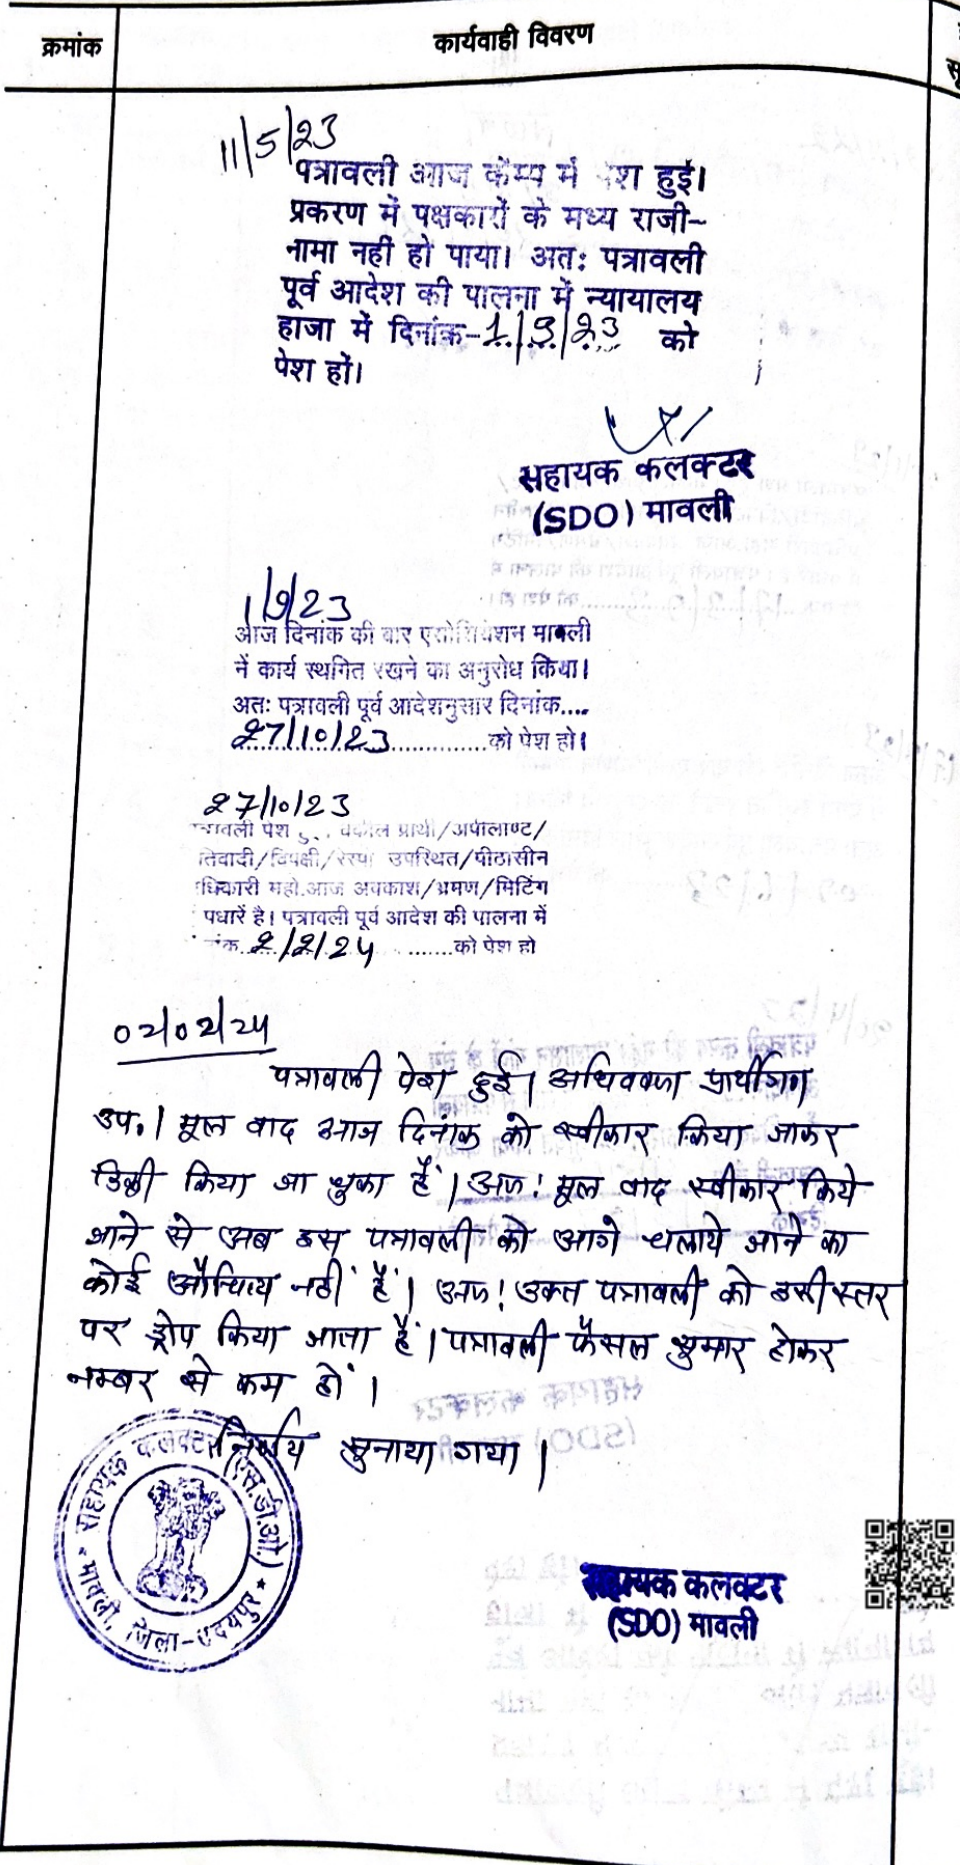 क्रमांक
कार्यवाही विवरण
11/5/23
पत्रावली आज केम्प में पेश हुई।
प्रकरण में पक्षकारों के मध्य राजी-
नामा नहीं हो पाया। अतः पत्रावली
पूर्व आदेश की पालना में न्यायालय
हाजा में दिनांक-1/9/23 को
पेश हों।
सहायक कलक्टर
(SDO) मावली
1/9/23
आज दिनांक की बार एसोशियेशन मावली
नें कार्य स्थगित रखने का अनुरोध किया।
अतः पत्रावली पूर्व आदेशनुसार दिनांक....
27/10/23..............को पेश हो।
27/10/23
त्रावली पेश हु.. वकील प्रार्थी/अपीलाण्ट/
तिवादी/विपक्षी/रेस्पो उपस्थित/पीठासीन
धिकारी महो.आज अवकाश/भ्रमण/मिटिंग
पधारें है। पत्रावली पूर्व आदेश की पालना में
ांक..2/2/24 .......को पेश हो
02/02/24
पत्रावली पेश हुई। अधिवक्ता प्रार्थीगण
उप.। मूल वाद आज दिनांक को स्वीकार किया जाकर
डिक्री किया जा चुका है। अतः मूल वाद स्वीकार किये
जाने से अब इस पत्रावली को आगे चलाये जाने का
कोई औचित्य नहीं हैं। अतः उक्त पत्रावली को इसी स्तर
पर ड्रोप किया जाता हैं। पत्रावली फैसल शुमार होकर
नम्बर से कम हों।
निर्णय सुनाया गया।
सहायक कलक्टर (एस.डी.ओ.)
मावली, जिला-उदयपुर
सहायक कलक्टर
(SDO) मावली